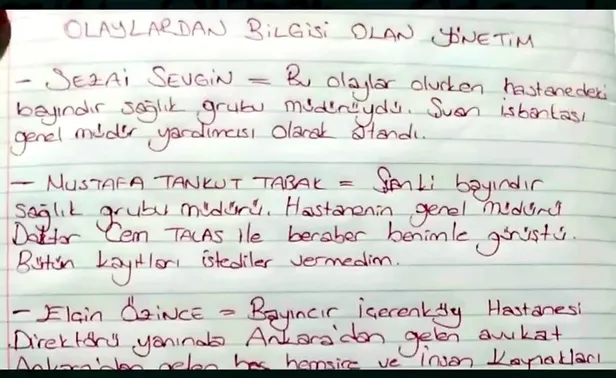 OLAYLARDAN BİLGİSİ OLAN YÖNETİM
- SEZAİ SEVGİN = Bu olaylar olurken hastanedeki
bayındır sağlık grubu müdürüydü. Şuan işbankası
genel müdür yardımcısı olarak atandı.
- MUSTAFA TANKUT TABAK = Şimdi bayındır
sağlık grubu müdürü. Hastanenin genel müdürü
Doktor Cem TALAS ile beraber benimle görüştü.
Bütün kayıtları istediler vermedim.
- Elgin ÖZİNCE = Bayıncır İçerenköy Hastanesi
Direktörü yanında Ankara'dan gelen avukat
Ankara'dan gelen baş hemşire ve İnsan Kaynakları